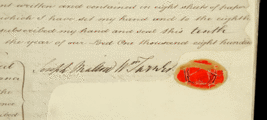 written and contained in eight sheets of paper
which I have set my hand and to the eighth
subscribed my hand and seal this tenth
the year of our Lord One thousand eight hundred
Joseph Mallord Wm Turner